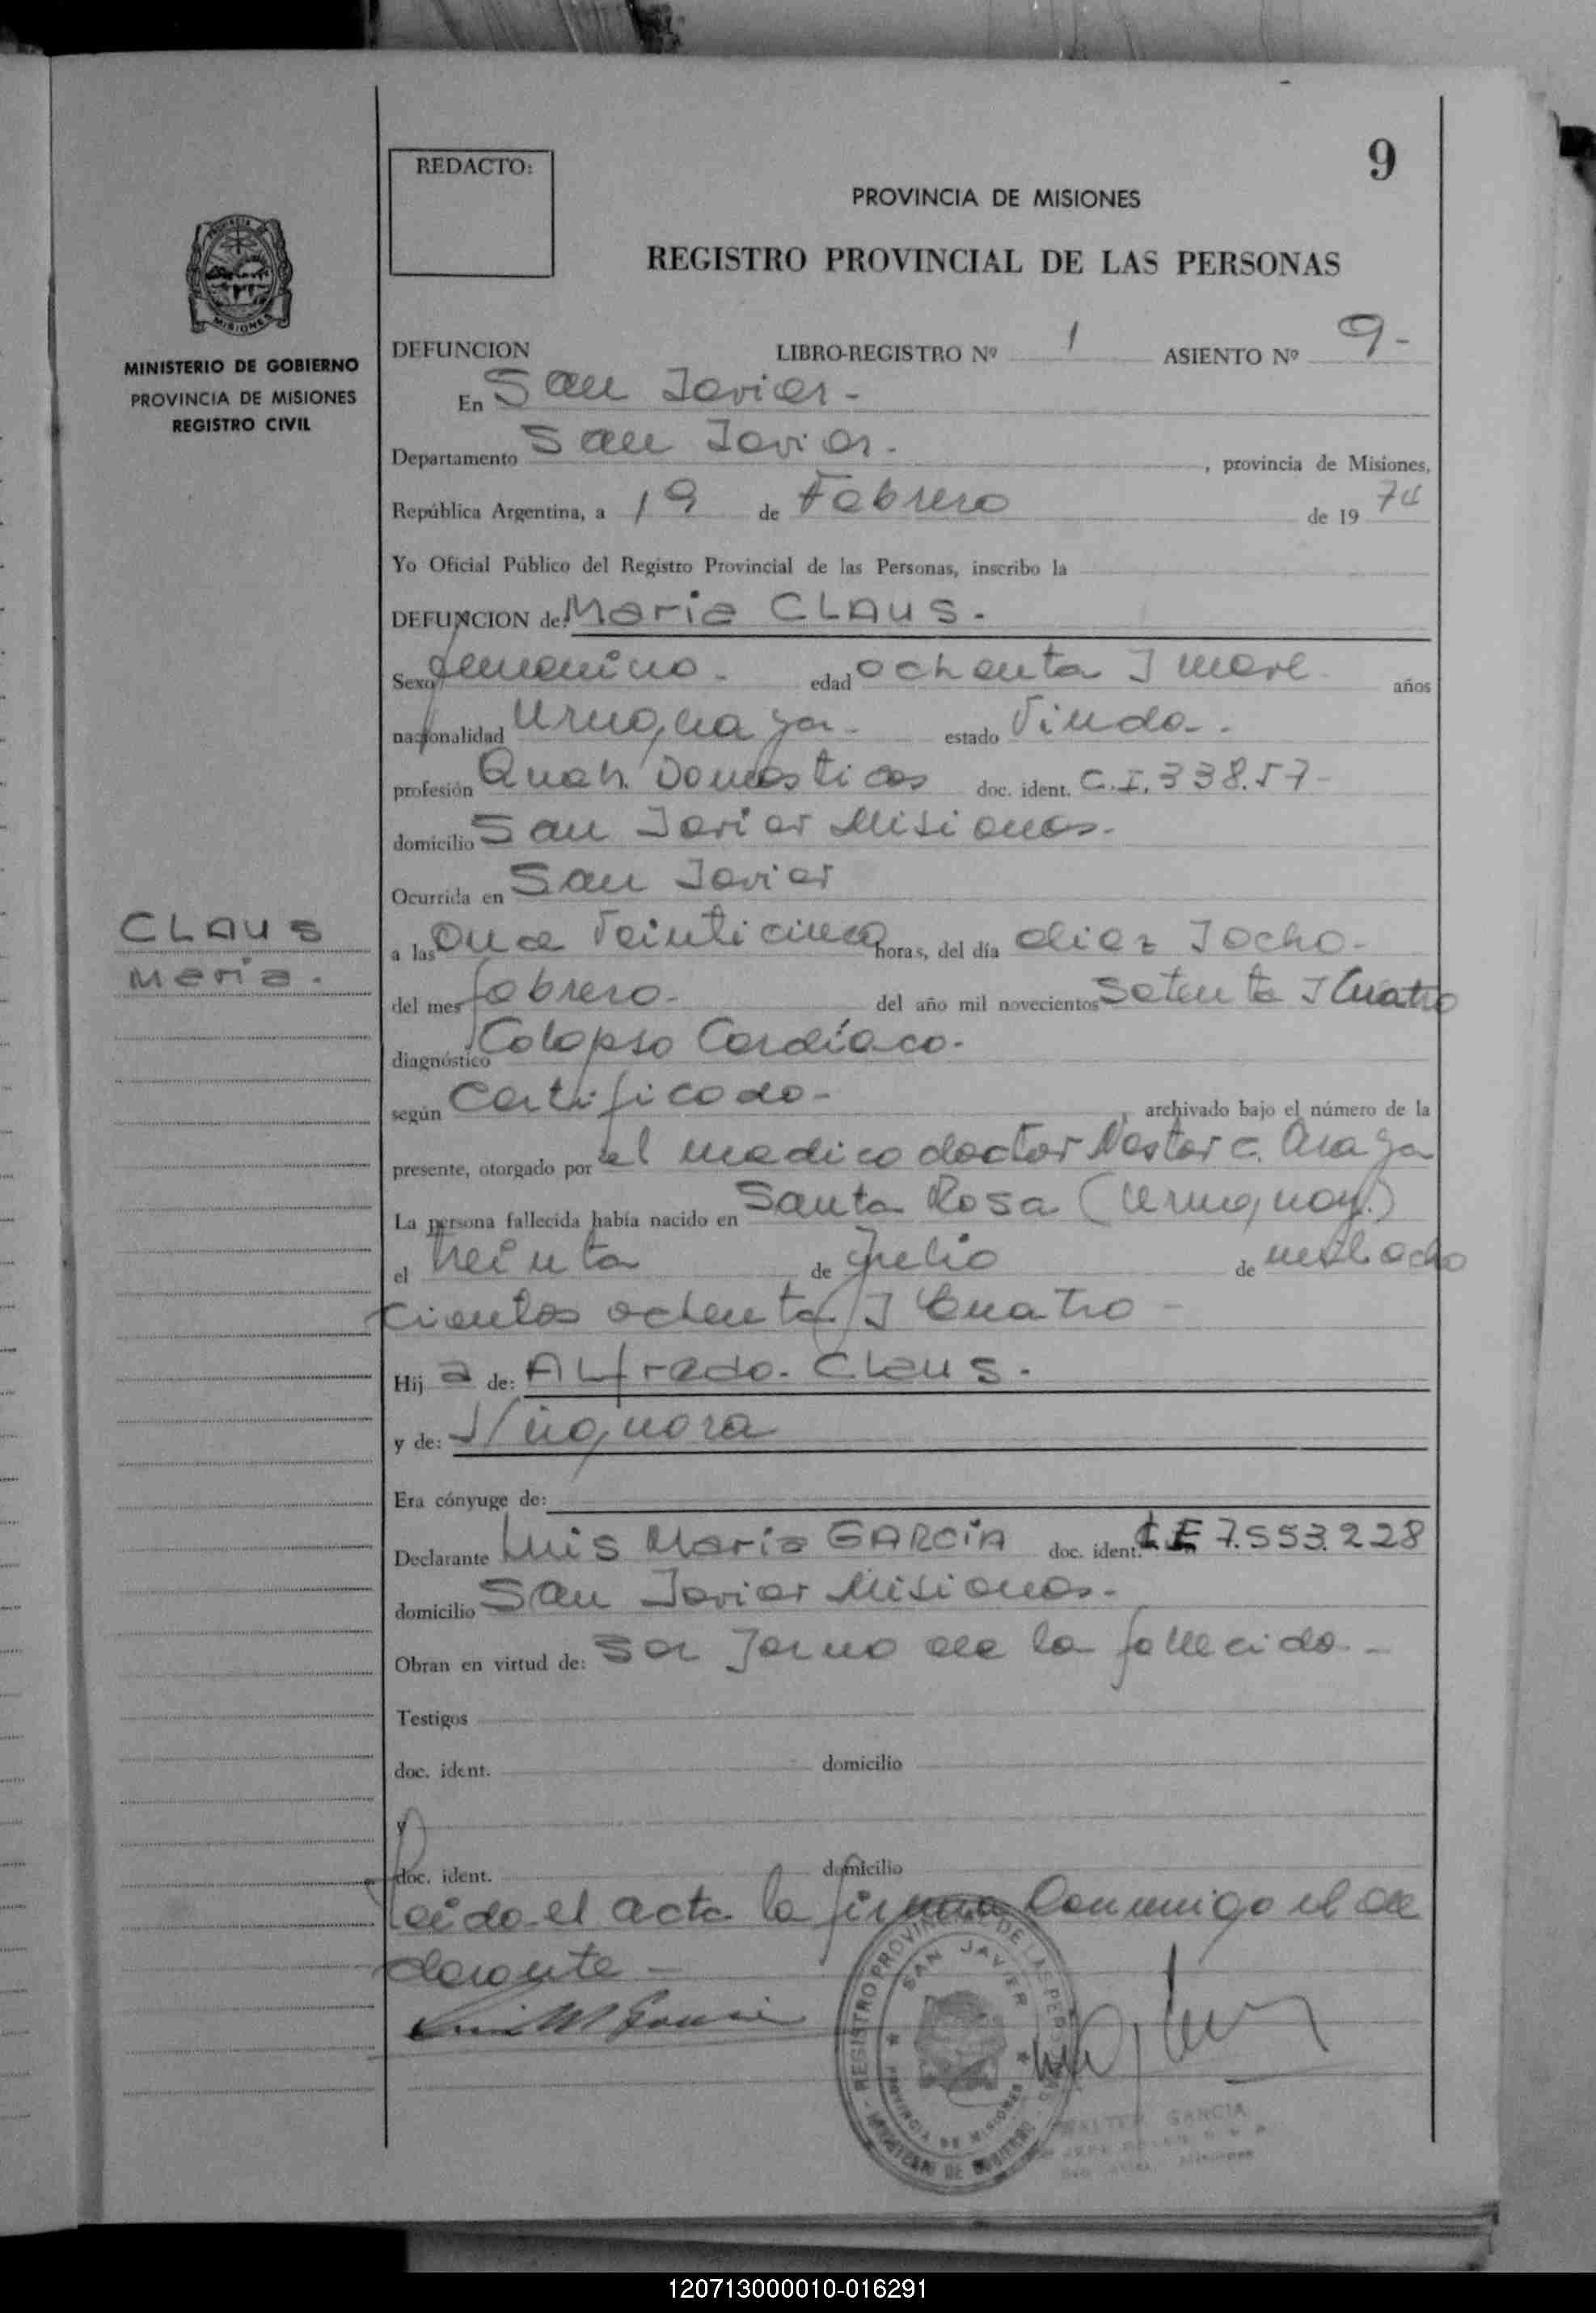 9
REDACTO:
PROVINCIA DE MISIONES
REGISTRO PROVINCIAL DE LAS PERSONAS
MISIONES
MINISTERIO DE GOBIERNO
PROVINCIA DE MISIONES
REGISTRO CIVIL
DEFUNCION LIBRO-REGISTRO Nº 1 ASIENTO Nº 9-
En San Javier-
Departamento San Javier-, provincia de Misiones,
República Argentina, a 19 de Febrero de 1974
Yo Oficial Público del Registro Provincial de las Personas, inscribo la
DEFUNCION de: Maria CLAUS-
Sexo femenino- edad ochenta I nueve años
nacionalidad Uruguaya- estado Viuda-.
profesión Queh. Domesticos doc. ident. C.I. 338.57-
domicilio San Javier Misiones-
Ocurrida en San Javier
CLAUS
Maria.
a las Once Veinticinco horas, del día diez I ocho-
del mes febrero- del año mil novecientos Setenta I Cuatro
diagnóstico Colapso Cardíaco-
según Certificado-, archivado bajo el número de la
presente, otorgado por el medico doctor Nestor C. Anaya
La persona fallecida había nacido en Santa Rosa (Uruguay)
el treinta de Julio de mil ocho
cientos ochenta I Cuatro-
Hij a de: ALfredo. Claus.
y de:
Era cónyuge de:
Declarante Luis Maria GARCIA doc. ident. LE 7.553.228
domicilio San Javier Misiones-
Obran en virtud de: Ser Jerno de la fallecida-
Testigos
doc. ident. domicilio
y
doc. ident. domicilio
Leida el acta la firma Conmigo el de
clarante-
Luis M Garcia
REGISTRO PROVINCIAL DE LAS PERSONAS
SAN JAVIER
PROVINCIA DE MISIONES
MINISTERIO DE GOBIERNO
WALTER GARCIA
120713000010-016291